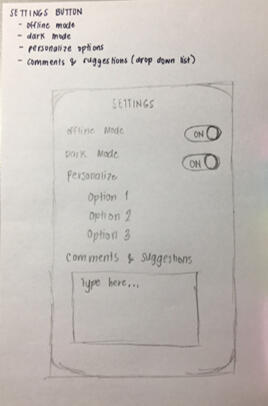 SETTINGS BUTTON
- offline mode
- dark mode
- personalize options
- comments & suggestions (drop down list)
SETTINGS
offline Mode ON
Dark Mode ON
Personalize
Option 1
Option 2
Option 3
Comments & Suggestions
Type here...